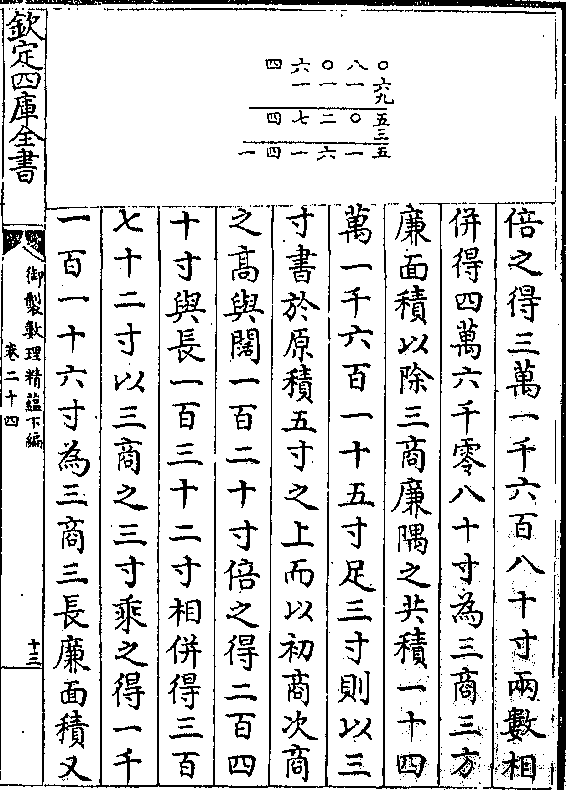 欽定四庫全書
四六〇八〇
一一一六
九
四七二〇五
三
一四一六一五
倍之得三萬一千六百八十寸兩數相
併得四萬六千零八十寸為三商三方
廉面積以除三商廉隅之共積一十四
萬一千六百一十五寸足三寸則以三
寸書於原積五寸之上而以初商次商
之高與闊一百二十寸倍之得二百四
十寸與長一百三十二寸相併得三百
七十二寸以三商之三寸乘之得一千
一百一十六寸為三商三長廉面積又
御製數理精蘊下編
卷二十四
十三